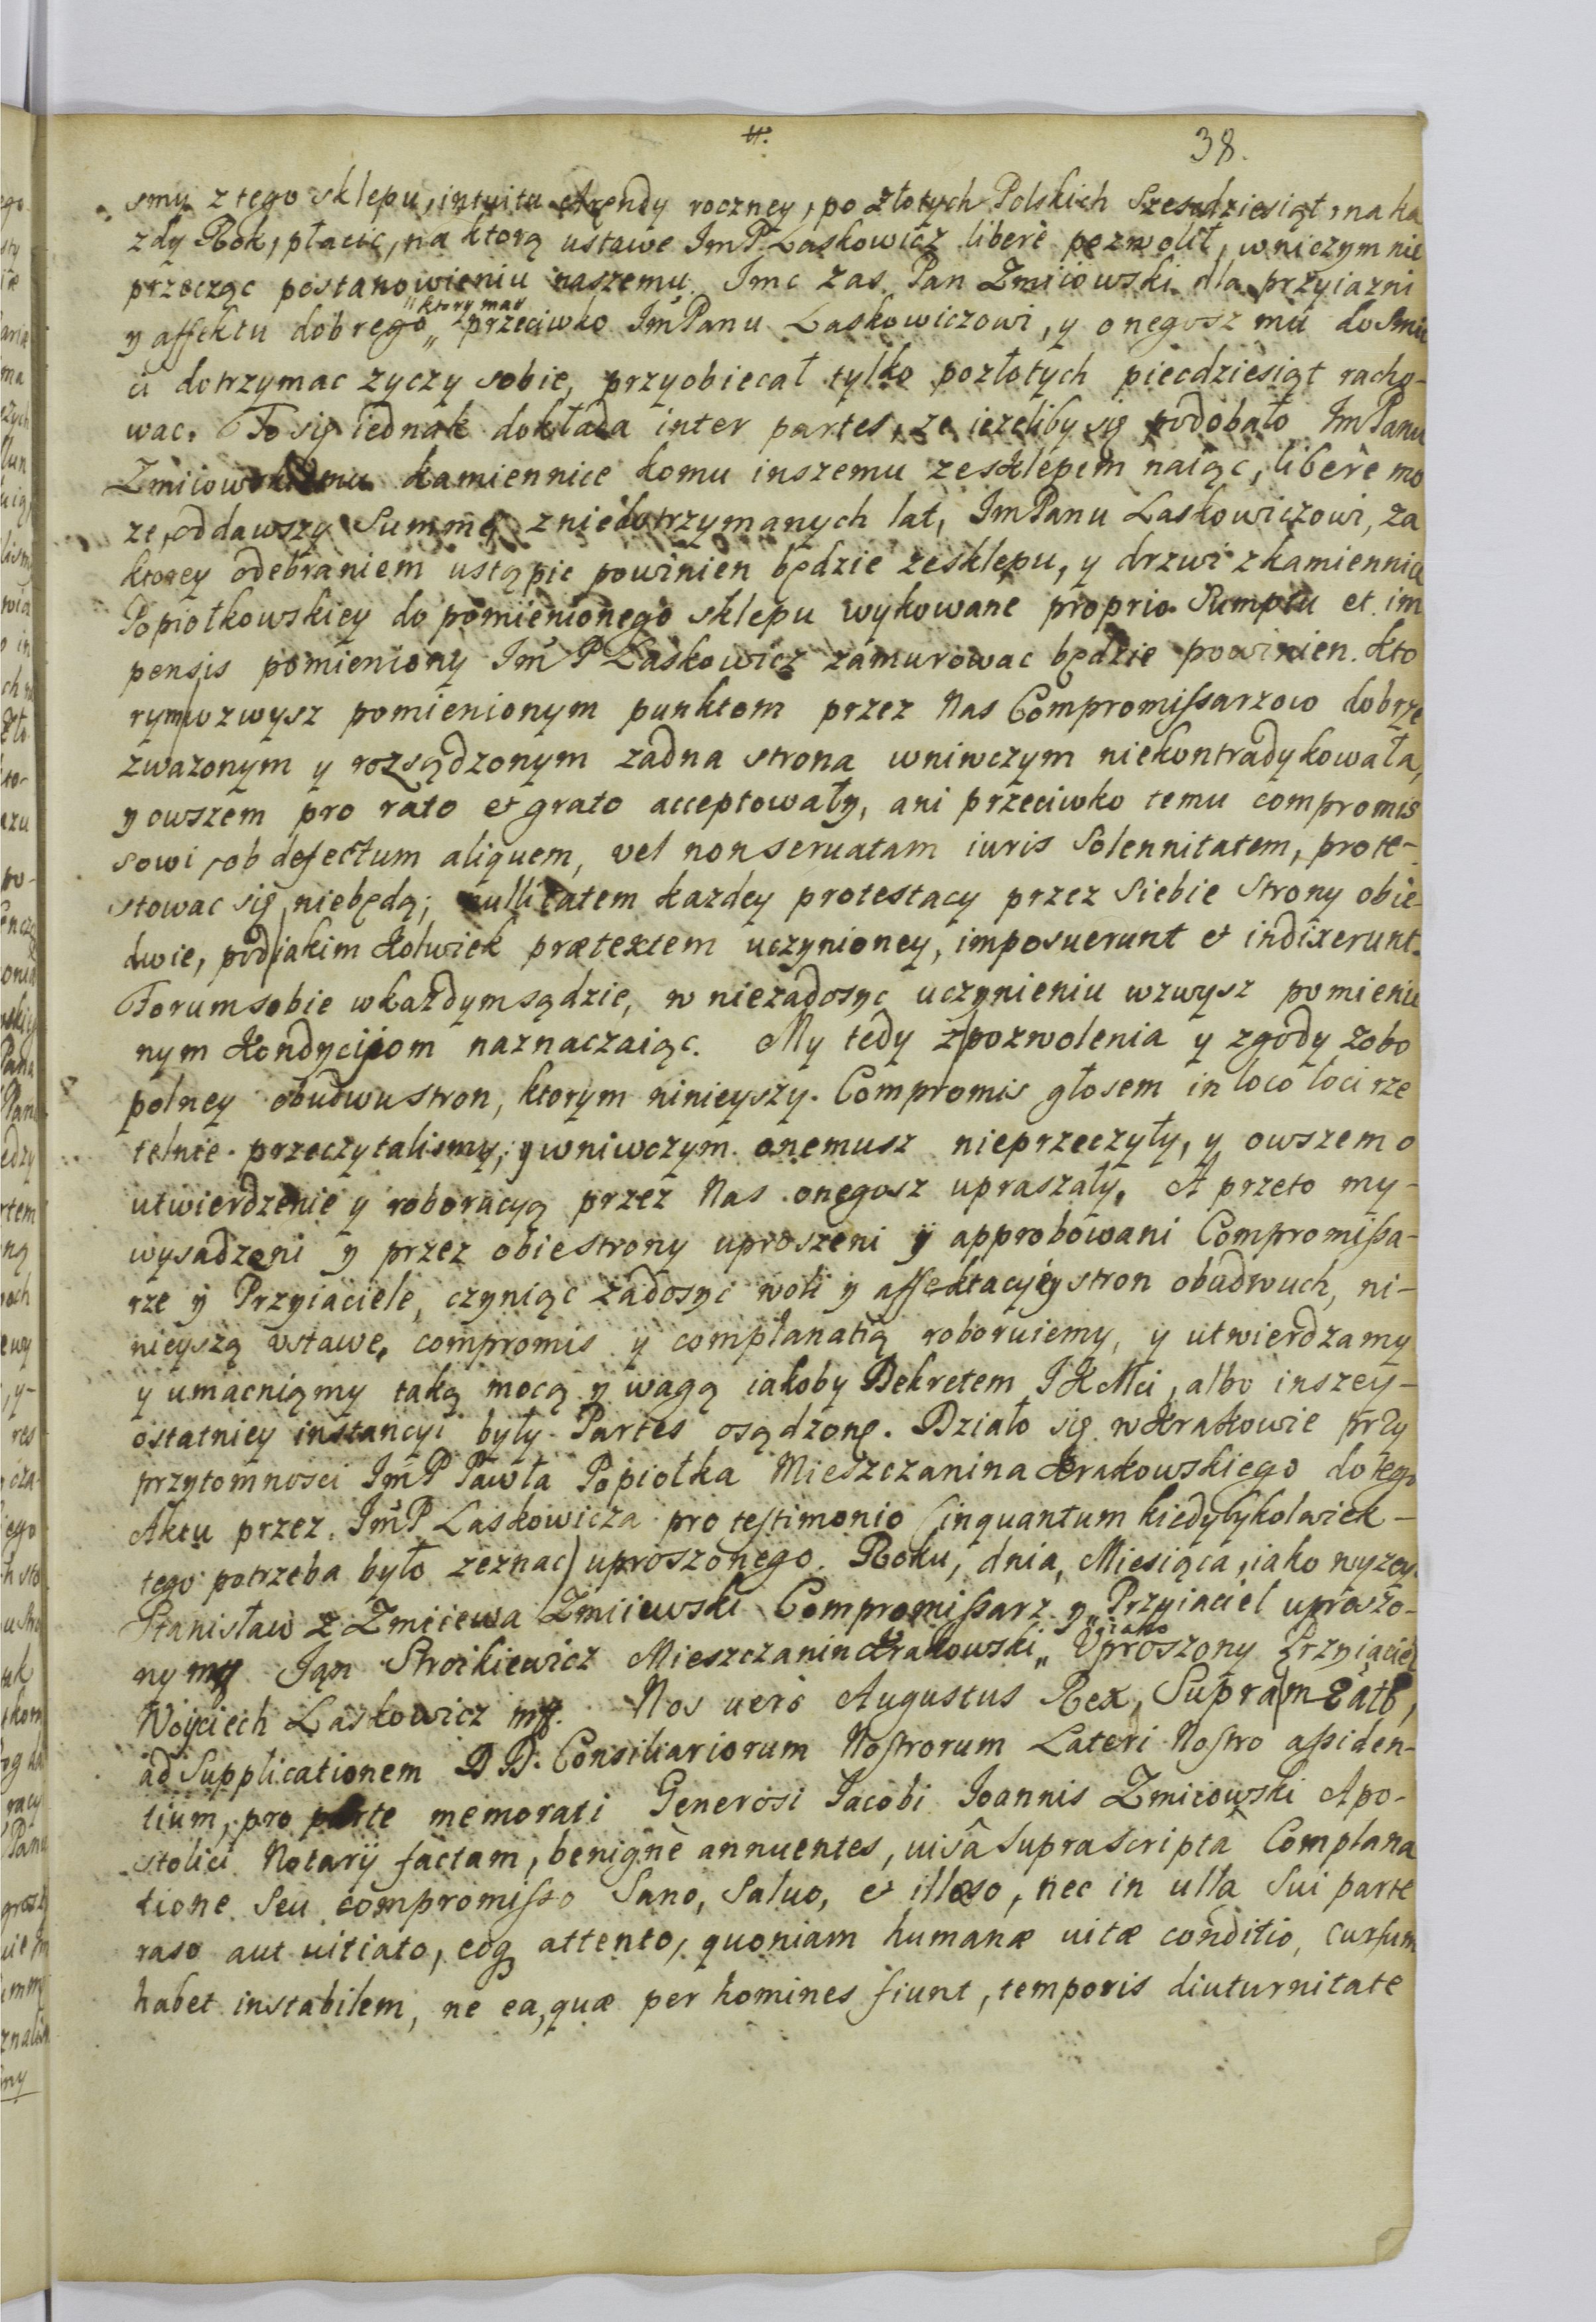 38.
smy z tego sklepu, intuitu Arendy roczney, po złotych Polskich Szesdziesiąt, na ka
zdy Rok, płacic, na ktorą ustawe ImP. Laskowicz liberè pozwolił, w niczym nie
przecząc postanowieniu naszemu. Imc zas Pan Zmiiowski dla przyiazni
y affektu dobrego „ktory ma„ przeciwko ImPanu Laskowiczowi, y onegosz mu do Smie
ci dotrzymac zyczy sobie, przyobiecał tylko pozłotych piecdziesiąt racho-
wac. To się iednak dokłada inter partes, ze iezeliby się podobało ImPanu
Zmiiowskiemu kamiennice komu inszemu zesklepem naiąc, liberè mo
ze, oddawszy Summę zniedotrzymanych lat, ImPanu Laskowiczowi, za
ktorey odebraniem ustąpic powinien będzie zesklepu, y drzwi zkamiennice
Popiołkowskiey do pomienionego sklepu wykowane proprio Sumptu et im
pensis pomieniony Im P Laskowicz zamurowac będzie powinien. Kto
rym wzwysz pomienionym punktom przez Nas Compromissarzow dobrze
zwazonym y rozsądzonym zadna strona wniwczym niekontradykowała,
y owszem pro rato et grato acceptowały, ani przeciwko temu compromis
sowi, ob defectum aliquem, vel non seruatam iuris Solennitatem, prote-
stowac się niebędą; nullitatem kazdey protestacy przez Siebie Strony obie-
dwie, pod iakim Kolwiek prætextem uczynioney, imposuerunt et indixerunt.
Forum sobie wkazdym sądzie, w niezadosyc uczynieniu wzwysz pomienio
nym Kondycijom naznaczaiąc. My tedy z pozwolenia y zgody zobo
polney obudwu stron, ktorym ninieyszy Compromis głosem in loco loci rze
telnie przeczytalismy, y wniwczym onemusz nieprzeczyły, y owszem o
utwierdzenie y roboracyą przez Nas onegosz upraszały, A przeto my-
wysadzeni y przez obie strony uproszeni y approbowani Compromissa-
rze y Przyiaciele, czyniąc zadosyc woli y affektacyiey stron obudwuch, ni-
nieyszą ustawe, compromis y complanatią roboruiemy, y utwierdzamy
y umacniąmy taką mocą y wagą iakoby Dekretem J K Mci, albo inszey-
ostatniey instancyi były Partes osądzone. Działo się w Krakowie przy
przytomnosci ImP Pawła Popiołka Mieszczanina Krakowskiego do tego
Aktu przez ImP Laskowicza pro testimonio (inquantum kiedybykolwiek-
tego potrzeba było zeznac) uproszonego. Roku, dnia, Miesiąca, iako wyzey.
Stanisław z Zmiiewa Zmiiewski Compromissarz y Przyiaciel uproszo-
ny mp Jan Stroikiewicz Mieszczanin Krakowski „iako„ Uproszony Przyiaciel
Woyciech Laskowicz mp. Nos verò Augustus Rex, Supra
ad Supplicationem D D. Consiliariorum Nostrorum Lateri Nostro assiden-
tium, pro parte memorati Generosi Iacobi Ioannis Zmiiowski Apo-
stolici Notarij factam, benignè annuentes, uisâ suprascriptâ Complana
tione seu compromisso Sano, Saluo, et illæso, nec in ulla Sui parte
raso aut vitiato, eoq attento, quoniam humanæ uitæ conditio, cursum
habet instabilem, ne ea, quæ per homines fiunt, temporis diuturnitate